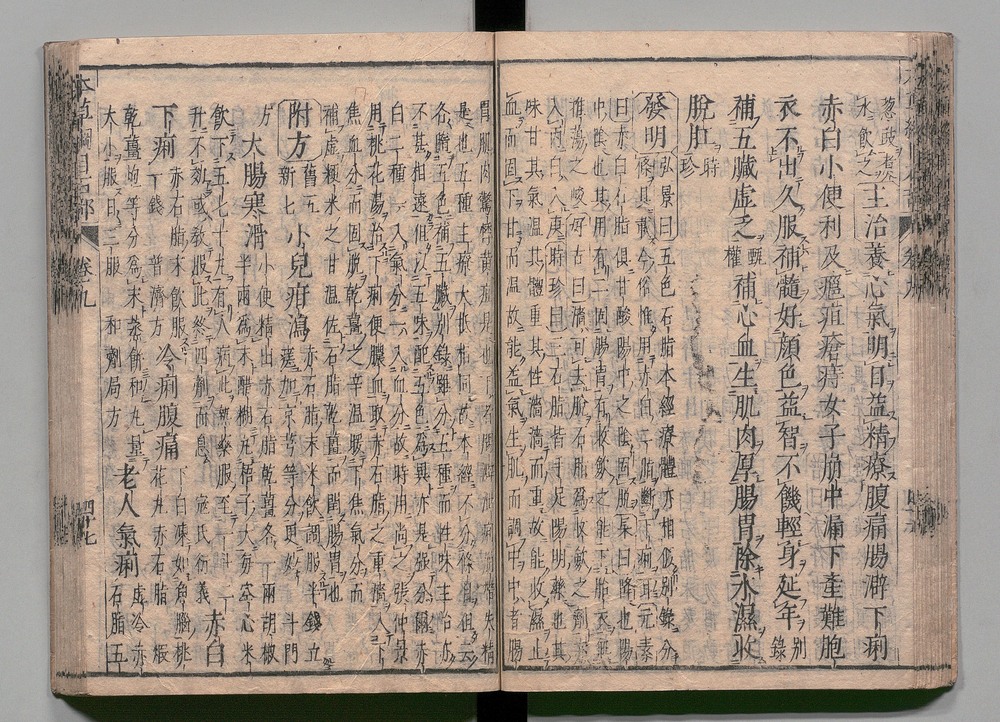 惡畏者
水飲
主治養心氣明目益精療腹痛腸澼下痢
赤白小便利及癰疽瘡痔女子崩中漏下產難胞
衣不出久服補髓好顏色益智不饑輕身延年別錄
補五臟虛乏甄權補心血生肌肉厚腸胃除水濕收
脫肛時珍
發明弘景曰五色石脂本經療體亦相似別錄分
條具載今俗惟用赤白二脂斷下痢耳元素
曰赤白石脂俱甘酸陽中之陰固脫杲曰降也陽
中陰也其用有二固腸胃有收斂之能下胎衣無
推蕩之峻好古曰澀可去脫石脂為收斂之劑赤
入丙白入庚時珍曰五石脂皆手足陽明藥也其
味甘其氣溫其體重其性澀澀而重故能收濕止
血而固下甘而溫故能益氣生肌而調中中者腸
是也五種主療大抵相同故本經不分條目但云
各隨五色補五臟別錄雖分五種而性味主治亦
不甚相遠但以五味配五色為異亦是强分爾赤
白二種一入氣分一入血分故時用尚之張仲景
用桃花湯治下痢便膿血取赤石脂之重澀入下
焦血分而固脫乾薑之辛溫暖下焦氣分而
補虛粳米之甘溫佐石脂乾薑而潤腸胃也
附方舊五新七小兒疳瀉赤石脂末米飲調服半錢立
瘥加京芎等分更妙斗門
方大腸寒滑小便精出赤石脂乾薑各一兩胡椒
半兩為末醋糊丸梧子大每空心米
飲下五七十丸有人病此熱藥服至一斗二
升不效或教服此終四劑而息寇氏衍義赤白
下痢赤石脂末飲服一錢普濟方冷痢腹痛下白凍如魚腦桃
花丸赤石脂煅
乾薑炮等分為末蒸餅和丸量
大小服日三服和劑局方老人氣痢虛冷赤
石脂五
本草綱目石部
卷九
四十七